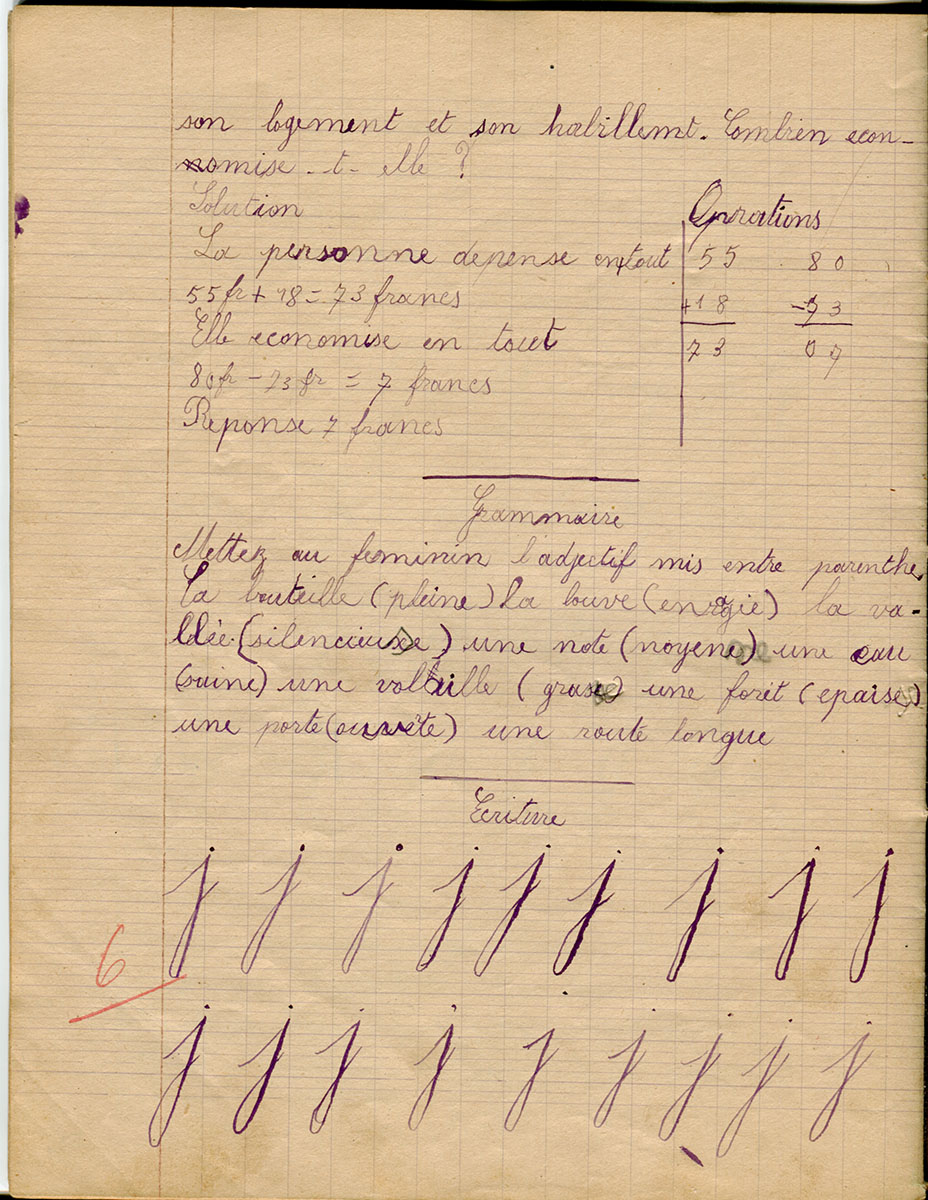 son logement et son habillemt. Combien econ-
nomise-t-elle ?
Solution
Oprations
La personne depense en tout
55 80
55 fr + 18 = 73 francs
+18 -73
Elle economise en tout
73 07
80 fr - 73 fr = 7 francs
Reponse 7 francs
Grammaire
Mettez au feminin l'adjectif mis entre parenthe
La bouteille (pleine) La louve (enragie) la va-
lléé (silencieuse) une note (moyene) une eau
(saine) une volaille (grase) une forêt (epaise)
une porte (ouvète) une route longue
Ecriture
j j j j j j j j j
6
j j j j j j j j j